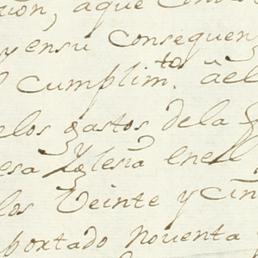 zion, aque con
y ensu consequen
l cumplim.to ael
elos gastos dela
esa Yglesia enell
los Veinte y cin
portado noventa